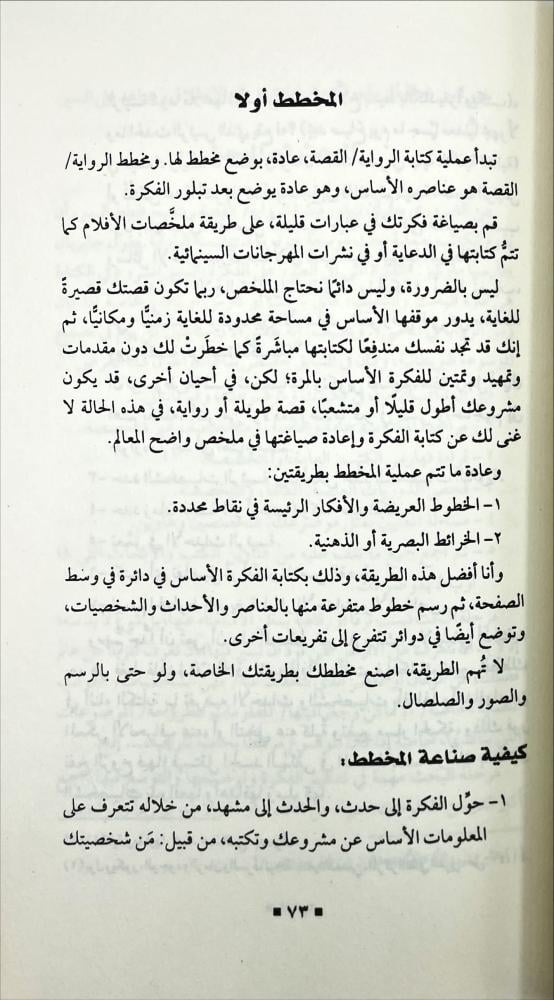 المخطط أولا
تبدأ عملية كتابة الرواية/ القصة، عادة، بوضع مخطط لها. ومخطط الرواية/
القصة هو عناصره الأساس، وهو عادة يوضع بعد تبلور الفكرة.
قم بصياغة فكرتك في عبارات قليلة، على طريقة ملخَّصات الأفلام كما
تتمُّ كتابتها في الدعاية أو في نشرات المهرجانات السينمائية.
ليس بالضرورة، وليس دائمًا نحتاج الملخص، ربما تكون قصتك قصيرةً
للغاية، يدور موقفها الأساس في مساحة محدودة للغاية زمنيًّا ومكانيًّا، ثم
إنك قد تجد نفسك مندفِعًا لكتابتها مباشَرةً كما خطَرتْ لك دون مقدمات
وتمهيد وتمتين للفكرة الأساس بالمرة؛ لكن، في أحيان أخرى، قد يكون
مشروعك أطول قليلًا أو متشعبًا، قصة طويلة أو رواية، في هذه الحالة لا
غنى لك عن كتابة الفكرة وإعادة صياغتها في ملخص واضح المعالم.
وعادة ما تتم عملية المخطط بطريقتين:
١- الخطوط العريضة والأفكار الرئيسة في نقاط محددة.
٢- الخرائط البصرية أو الذهنية.
وأنا أفضل هذه الطريقة، وذلك بكتابة الفكرة الأساس في دائرة في وسَط
الصفحة، ثم رسم خطوط متفرعة منها بالعناصر والأحداث والشخصيات،
وتوضع أيضًا في دوائر تتفرع إلى تفريعات أخرى.
لا تُهم الطريقة، اصنع مخططك بطريقتك الخاصة، ولو حتى بالرسم
والصور والصلصال.
كيفية صناعة المخطط:
١- حوِّل الفكرة إلى حدث، والحدث إلى مشهد، من خلاله تتعرف على
المعلومات الأساس عن مشروعك وتكتبه، من قبيل: مَن شخصيتك
▪ ٧٣ ▪